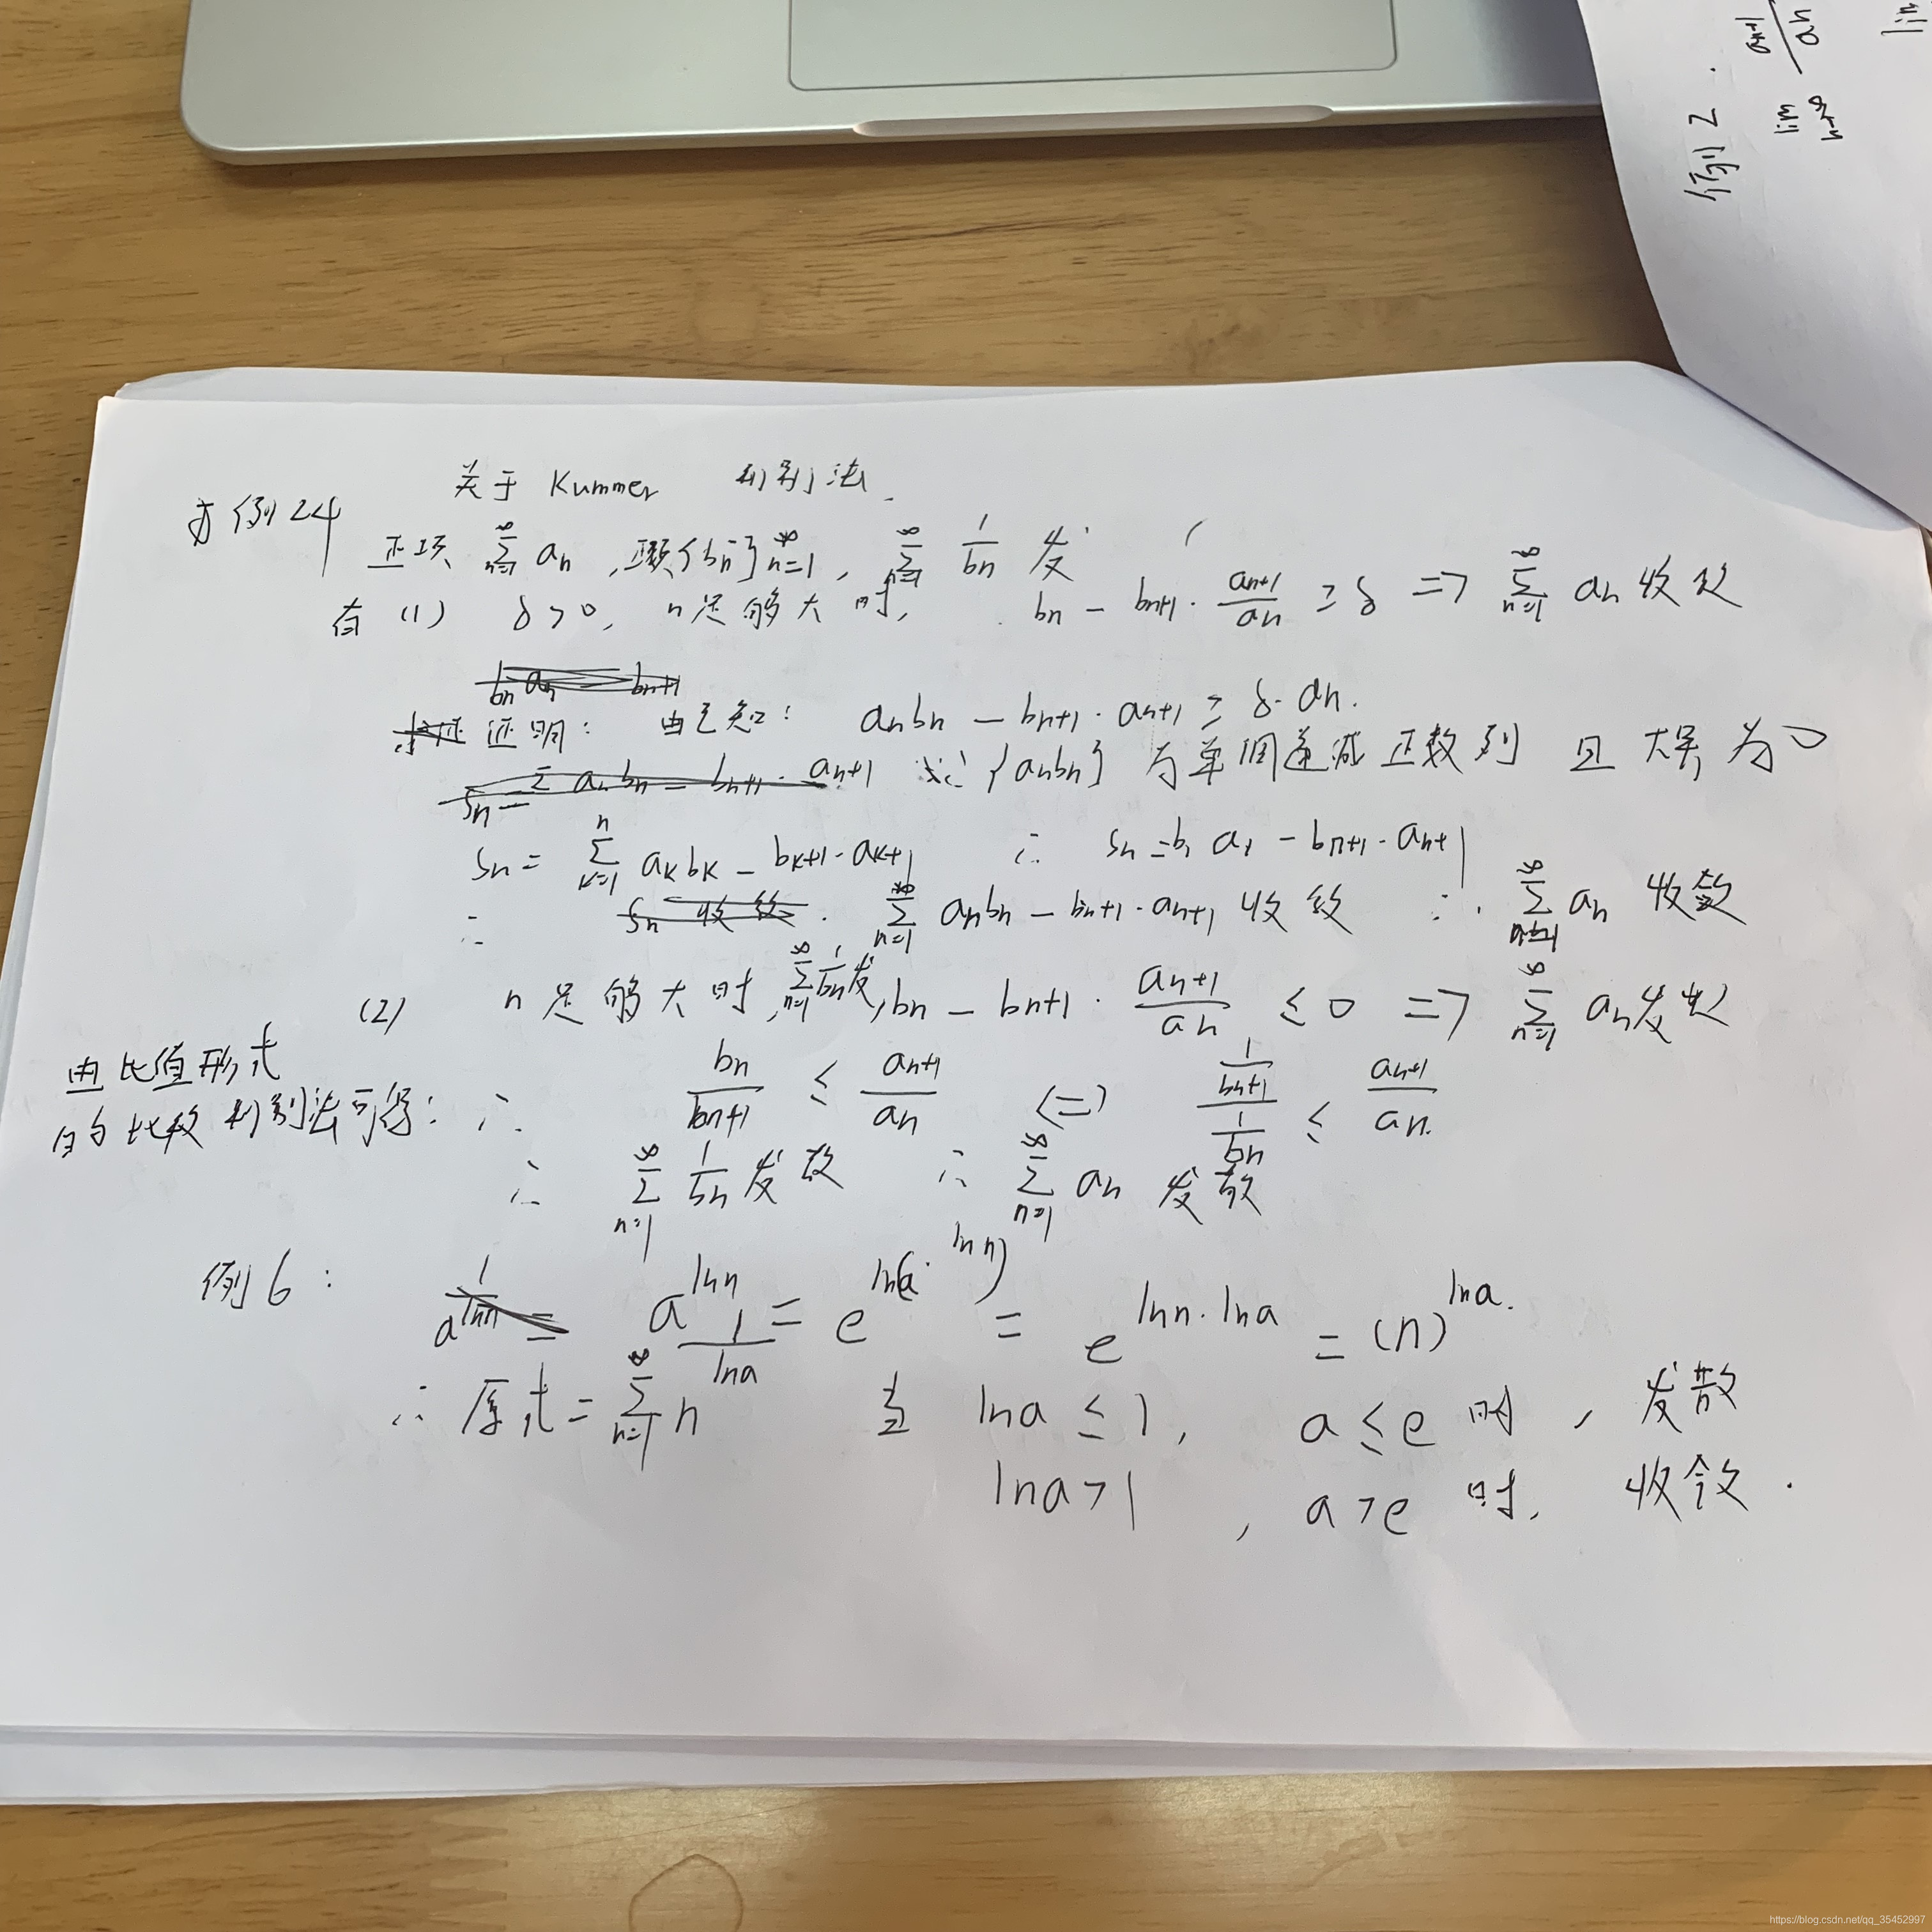 例2.
lim n→∞ an+1/an
lim
关于 Kummer 判别法.
例24
正项 ∑_{n=1}^∞ an, {bn}_{n=1}^∞, ∑_{n=1}^∞ 1/bn 发
有 (1) δ>0, n足够大时, bn - bn+1·an+1/an ≥ δ => ∑_{n=1}^∞ an 收敛
证明: 由已知: anbn - bn+1·an+1 ≥ δ·an.
{anbn} 为单调递减正数列 且 为0
Sn = ∑_{k=1}^n akbk - bk+1·ak+1 ∴ Sn = b1a1 - bn+1·an+1
∴ ∑_{n=1}^∞ anbn - bn+1·an+1 收敛 ∴ ∑_{n=1}^∞ an 收敛
(2) n足够大时, ∑_{n=1}^∞ 1/bn 发, bn - bn+1·an+1/an ≤ 0 => ∑_{n=1}^∞ an 发散
由比值形式
的比较判别法可得: ∴ bn/bn+1 ≤ an+1/an <=> (1/bn+1)/(1/bn) ≤ an+1/an.
∴ ∑_{n=1}^∞ 1/bn 发散 ∴ ∑_{n=1}^∞ an 发散
例6: a^{lnn} = e^{ln(a^{lnn})} = e^{lnn·lna} = (n)^{lna}.
∴ 原式 = ∑_{n=1}^∞ 1/n^{lna} 当 lna ≤ 1, a ≤ e 时, 发散
lna > 1, a > e 时, 收敛.
https://blog.csdn.net/qq_35452997